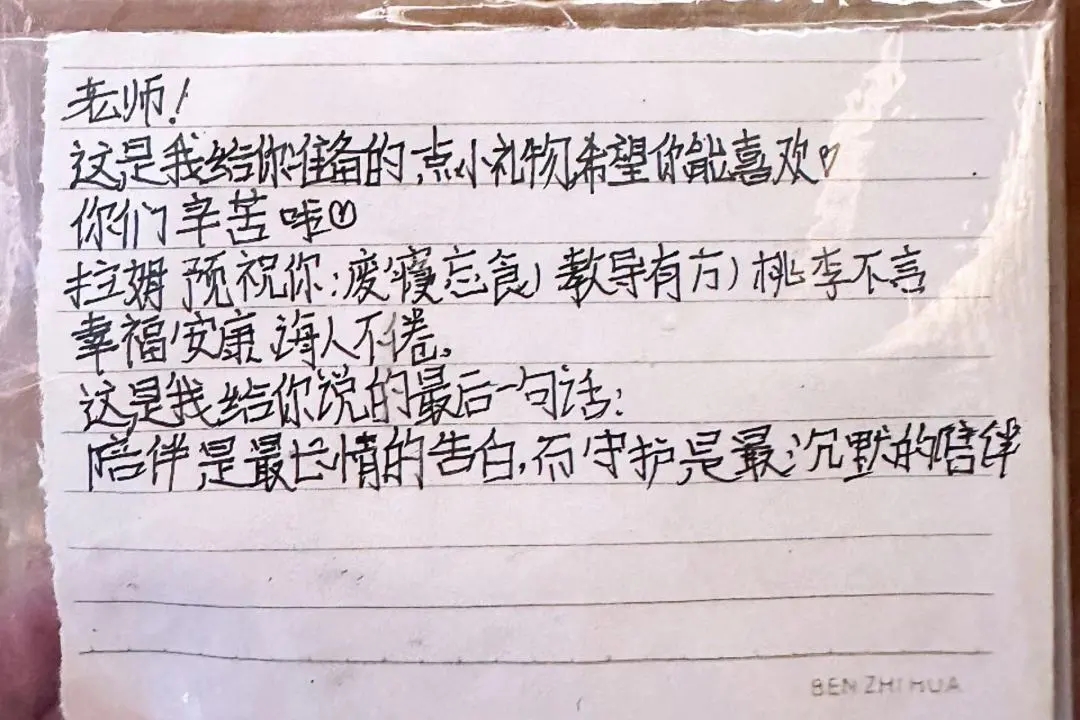 老师!
这是我给你准备的,点小礼物,希望你能喜欢♡
你们辛苦啦♡
拉姆 预祝你:废寝忘食,教导有方,桃李不言
幸福安康 海人不倦。
这是我给你说的最后一句话:
陪伴是最长情的告白,而守护是最沉默的陪伴
BEN ZHI HUA